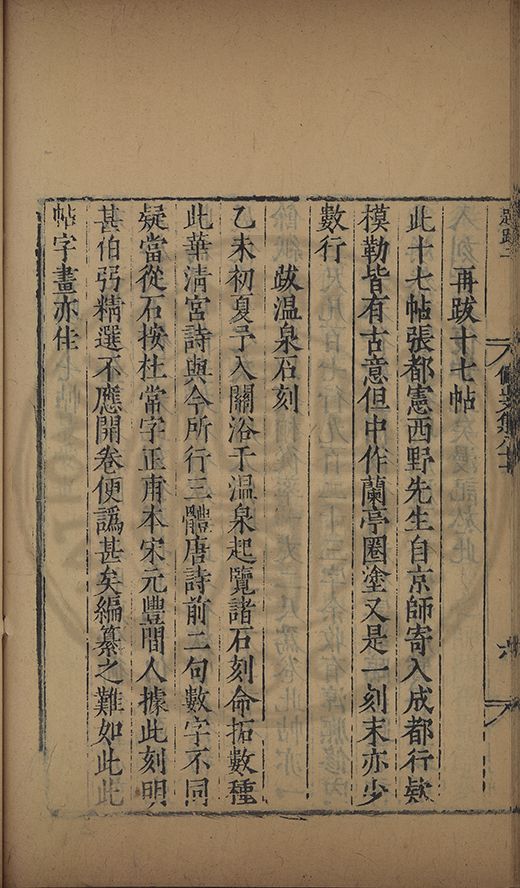 題跋二
六
再跋十七帖
此十七帖張都憲西野先生自京師寄入成都行欵
模勒皆有古意但中作蘭亭圈塗又是一刻末亦少
數行
跋溫泉石刻
乙未初夏予入關浴于溫泉起覽諸石刻命拓數種
此華清宮詩與今所行三體唐詩前二句數字不同
疑當從石按杜常字正甫本宋元豐間人據此刻明
甚伯弜精選不應開卷便譌甚矣編纂之難如此此
帖字畫亦佳